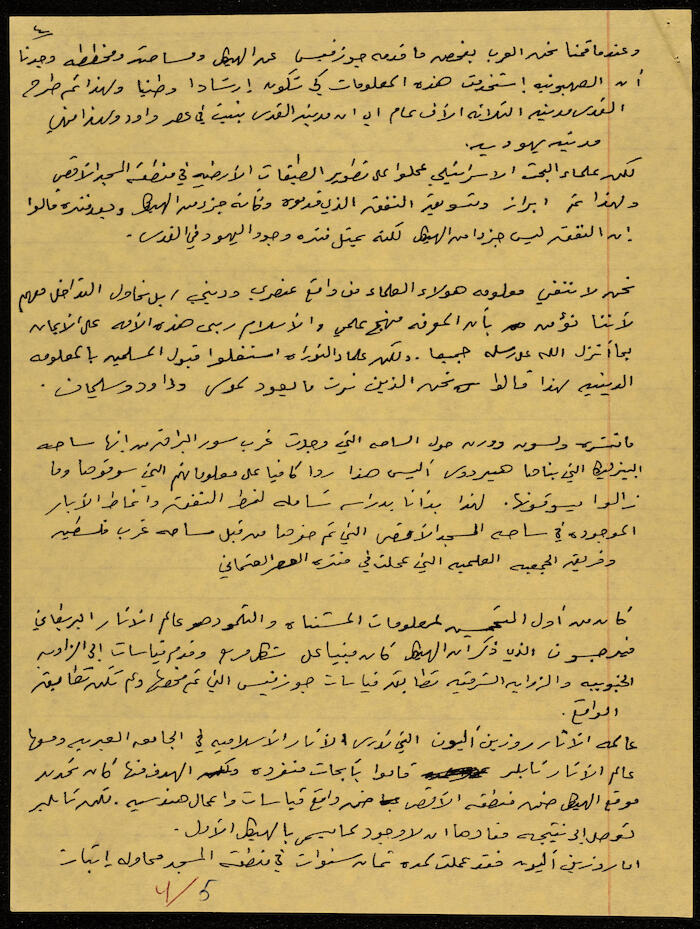 ٤
وعندما قمنا نحن العرب بفحص ما قدمه جوزيفس عن الهيكل ومساحته ومخططه وجدنا
أن الصهيونيه استخدمت هذه المعلومات كي تكون إرشادا وطنيا ولهذا تم طرح
القدس مدينه الثلاثه الآف عام اي ان مدينة القدس بنيت في عصر داود ولهذا فهي
مدينه يهوديه
لكن علماء البحث الاسرائيلي عملوا على تطوير الطبقات الأرضيه في منطقه المسجد الأقصى
ولهذا تم ابراز وتسويق النفق الذي قدموه وكأنه جزء من الهيكل وبعد فتره قالوا
إن النفق ليس جزءا من الهيكل لكنه يمثل فتره وجود اليهود في القدس .
نحن لا ننفي معلومه هولاء العلماء من واقع عنصري وديني ، بل نحاول التداخل معهم
لأننا نؤمن بأن المعرفه منهج علمي والأسلام ربى هذه الأمه على الأيمان
بما أنزل الله على رسله جميعا . ولكن علماء التوراه استغلوا قبول المسلمين بالمعلومه
الدينيه لهذا قالوا نحن الذين نرث ما يعود لموسى وداود وسليمان .
ما نشره ولسون وورن حول الساحه التي وجدت غرب سور البراق من انها ساحه
البيزليكا التي بناها هيرودس أليس هذا ردا كافيا على معلوماتهم التي سوقوها وما
زالوا يسوقونها . لهذا بدأنا بدراسه شامله لنمط النفق وانماط الأبار
الموجوده في ساحه المسجد الأقصى التي تم حفرها من قبل مساحه غرب فلسطين
وفريق الجمعيه العلميه التي عملت في فتره العصر العثماني
كان من أول لمعلومات المشناه والتلمود هو عالم الأثار البريطاني
فيرجسون الذي ذكر أن الهيكل كان مبنيا على شكل مربع وقدم قياسات إلى الزاويه
الجنوبيه والزوايه الشرقيه تطابقت قياسات جوزيفس التي تم فحصها ولم تكن تطابق
الواقع .
عالمه الأثار روزين أليون التي تدرس الأثار الأسلاميه في الجامعه العبريه ومعها
عالم الأثار تايلر قاموا بأبحاث منفرده الهدف منها كان تحديد
موقع الهيكل ضمن منطقه الأقصى ضمن واقع قياسات واعمال هندسيه . لكن تايلر
توصل إلى نتيجه مفادها ان لا وجود لما يسمى بالهيكل الأول .
اما روزين أليون فقد عملت لمده ثمان سنوات في منطقه المسجد محاوله إثبات
٤/5